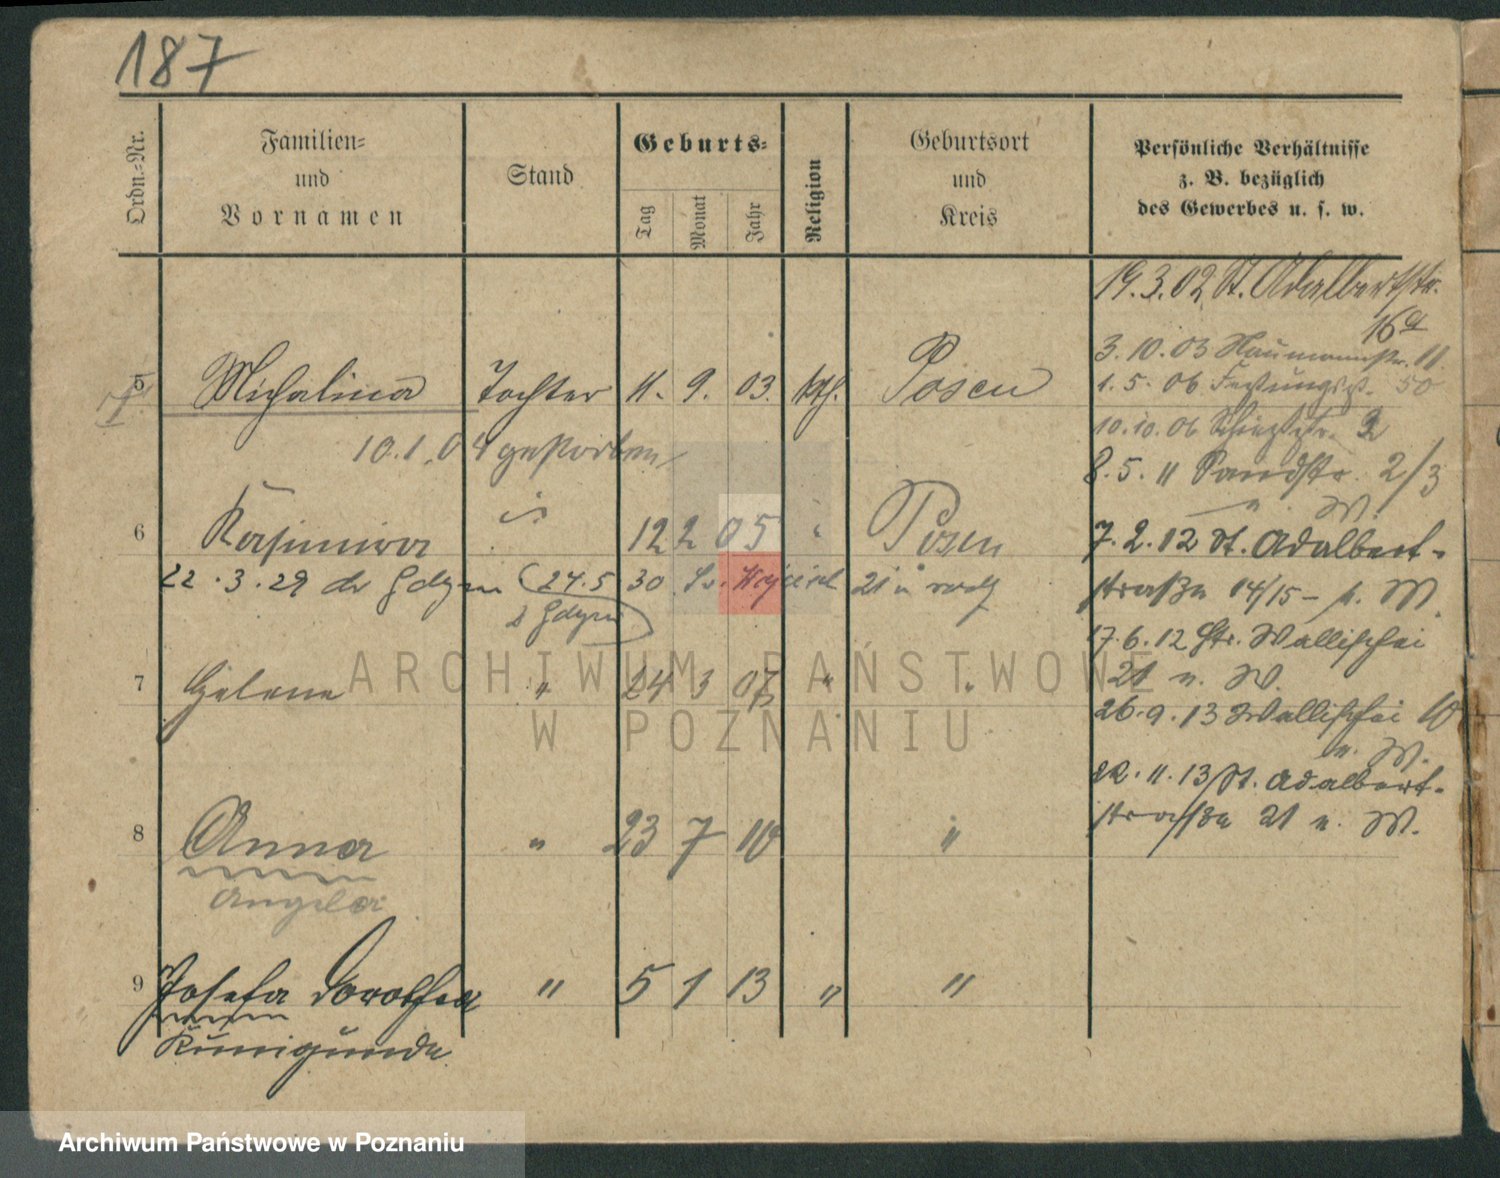 187
Ordn.-Nr.
Familien-
und
Vornamen
Stand
Geburts-
Tag
Monat
Jahr
Religion
Geburtsort
und
Kreis
Persönliche Verhältnisse
z. B. bezüglich
des Gewerbes u. s. w.
19.3.02 St. Adalbertstr.
16a
3.10.03 Naumannstr. 11.
5 Michalina Tochter 11. 9. 03. kth. Posen
1.5.06 Festungsst. 50
10.1.04 gestorben
10.10.06 Schiezstr. 2
8.5.11 Sandstr. 2/3
u. W.
6 Kasimira 12 2 05 " Posen
7.2.12 St. Adalbert-
22.3.29 do Gdyni (24.5 30 Św. Wojciech 21 u
z Gdyni)
straße 14/15 - u. W.
17.6.12 Gr. Wallischei
7 Helene " 24 3 07 " "
21 u. W.
26.9.13 Wallischei 10
u. W.
22.11.13 St. Adalbert-
8 Anna " 23 7 10 "
straße 21 u. W.
Angela
9 Josefa Dorothea " 5 1 13 " "
Kunigunde
ARCHIWUM PAŃSTWOWE
W POZNANIU
Archiwum Państwowe w Poznaniu